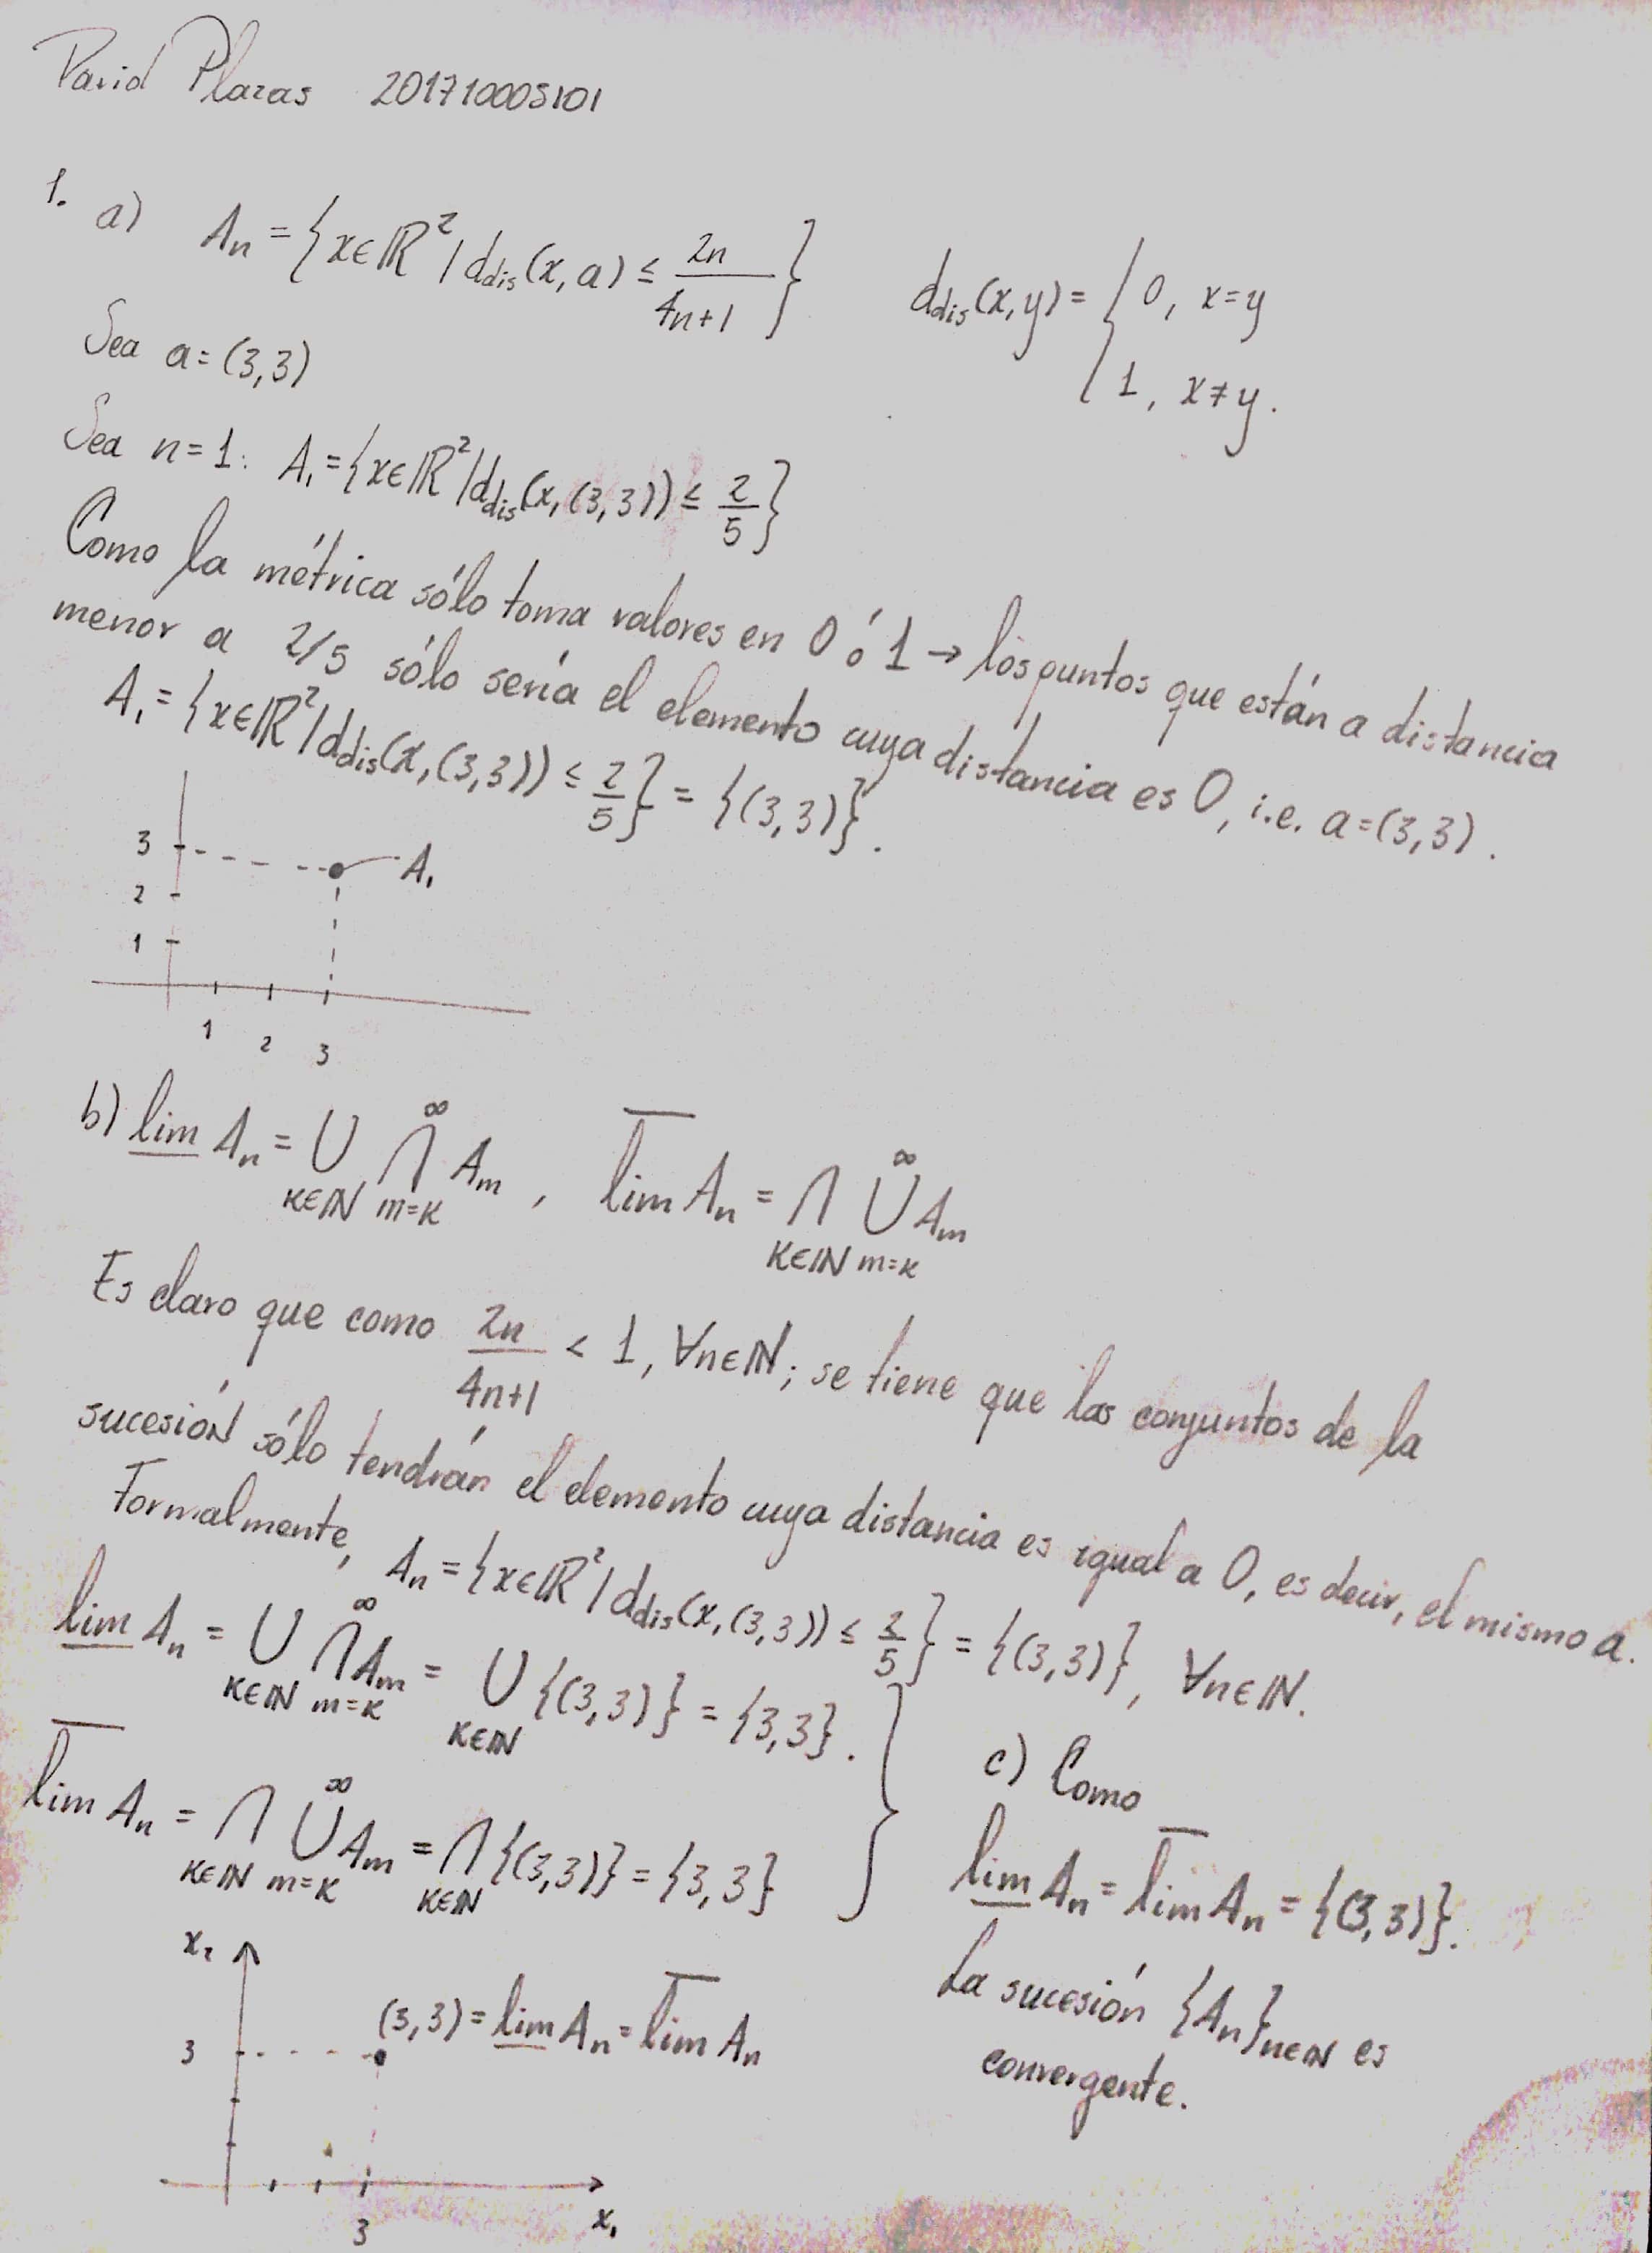 David Plazas 201710005101
1. a) Aₙ = {x∈ℝ² / d_dis(x, a) ≤ 2n/(4n+1)} d_dis(x,y) = { 0, x=y
1, x≠y.
Sea a=(3,3)
Sea n=1: A₁={x∈ℝ²/d_dis(x,(3,3)) ≤ 2/5}
Como la métrica sólo toma valores en 0 ó 1 → los puntos que están a distancia
menor a 2/5 sólo sería el elemento cuya distancia es 0, i.e. a=(3,3).
A₁={x∈ℝ²/d_dis(x,(3,3)) ≤ 2/5} = {(3,3)}.
3 A₁
2
1
1 2 3
b) <u>lim</u> Aₙ = ⋃_{K∈ℕ} ⋂_{m=K}^∞ Aₘ , l̅i̅m̅ Aₙ = ⋂_{K∈ℕ} ⋃_{m=K}^∞ Aₘ
Es claro que como 2n/(4n+1) < 1, ∀n∈ℕ; se tiene que los conjuntos de la
sucesión sólo tendrán el elemento cuya distancia es igual a 0, es decir, el mismo a.
Formalmente, Aₙ={x∈ℝ²/d_dis(x,(3,3)) ≤ 2/5} = {(3,3)}, ∀n∈ℕ.
<u>lim</u> Aₙ = ⋃_{K∈ℕ} ⋂_{m=K}^∞ Aₘ = ⋃_{K∈ℕ} {(3,3)} = {3,3}.
l̅i̅m̅ Aₙ = ⋂_{K∈ℕ} ⋃_{m=K}^∞ Aₘ = ⋂_{K∈ℕ} {(3,3)} = {3,3}
c) Como
<u>lim</u> Aₙ = l̅i̅m̅ Aₙ = {(3,3)}.
La sucesión {Aₙ}_{n∈ℕ} es
convergente.
x₂
(3,3) = <u>lim</u> Aₙ = l̅i̅m̅ Aₙ
3
3 x₁